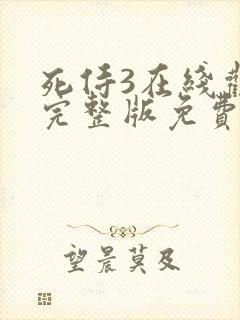 死侍3在线
完整版免費
望晨莫及